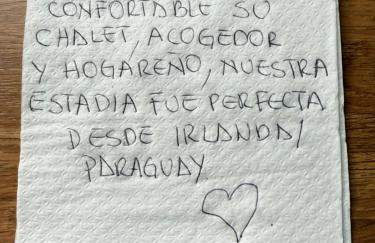 CONFORTABLE SU
CHALET, ACOGEDOR
Y HOGAREÑO, NUESTRA
ESTADIA FUE PERFECTA
DESDE IRLANDA/
PARAGUAY